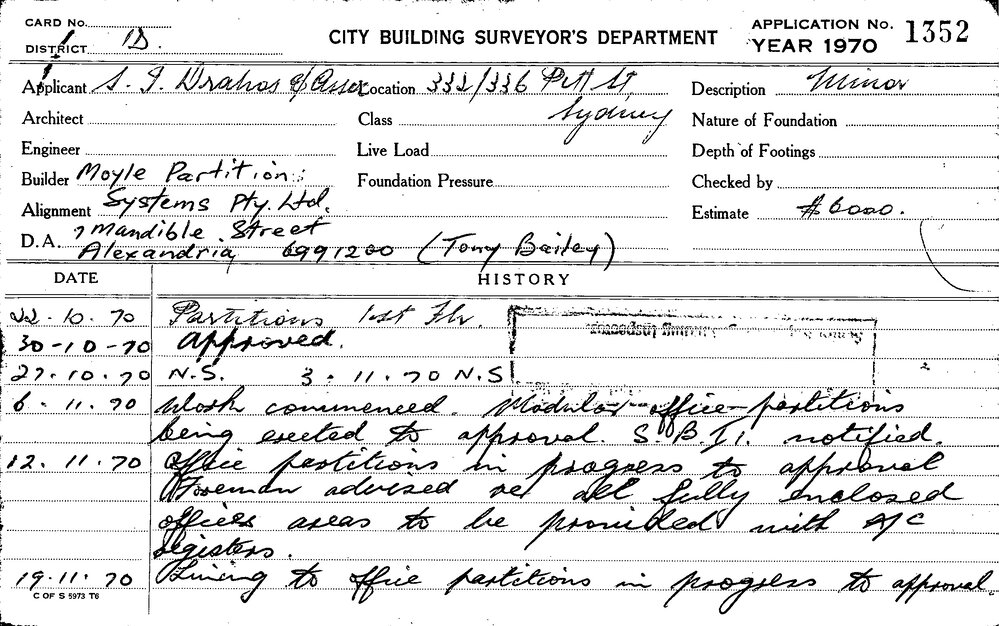 CARD No.
DISTRICT 1D.
CITY BUILDING SURVEYOR'S DEPARTMENT
APPLICATION No. 1352
YEAR 1970
Applicant S. J. Drahos & Assoc
Location 332/336 Pitt St.
Sydney
Description Minor
Architect
Class
Nature of Foundation
Engineer
Live Load
Depth of Footings
Builder Moyle Partition
Foundation Pressure
Checked by
Alignment Systems Pty. Ltd.
Estimate $6000.
D.A. 7 Mandible Street
Alexandria 6991200 (Tony Bailey)
DATE HISTORY
22.10.70 Partitions 1st Flr.
30-10-70 Approved.
27.10.70 N.S. 3.11.70 N.S
6.11.70 Work commenced. Modular office partitions
being erected to approval. S.B.I. notified.
12.11.70 Office partitions in progress to approval
Foreman advised re all fully enclosed
offices areas to be provided with A/C
registers.
19.11.70 Lining to office partitions in progress to approval.
C OF S 5973 T6